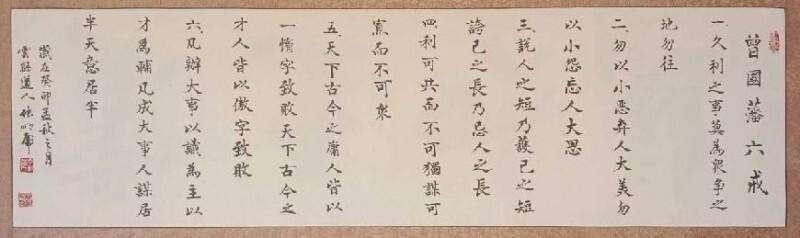 曾國藩六戒
一久利之事莫為衆争之
地勿往
二.勿以小惡弃人大美勿
以小怨忘人大恩
三.說人之短乃護己之短
誇己之長乃忌人之長
四.利可共而不可獨謀可
寡而不可衆
五.天下古今之庸人皆以
一惰字致敗天下古今之
才人皆以傲字致敗
六.凡辦大事以識為主以
才為輔凡成大事人謀居
半天意居半
歲在癸卯孟秋之月
道人